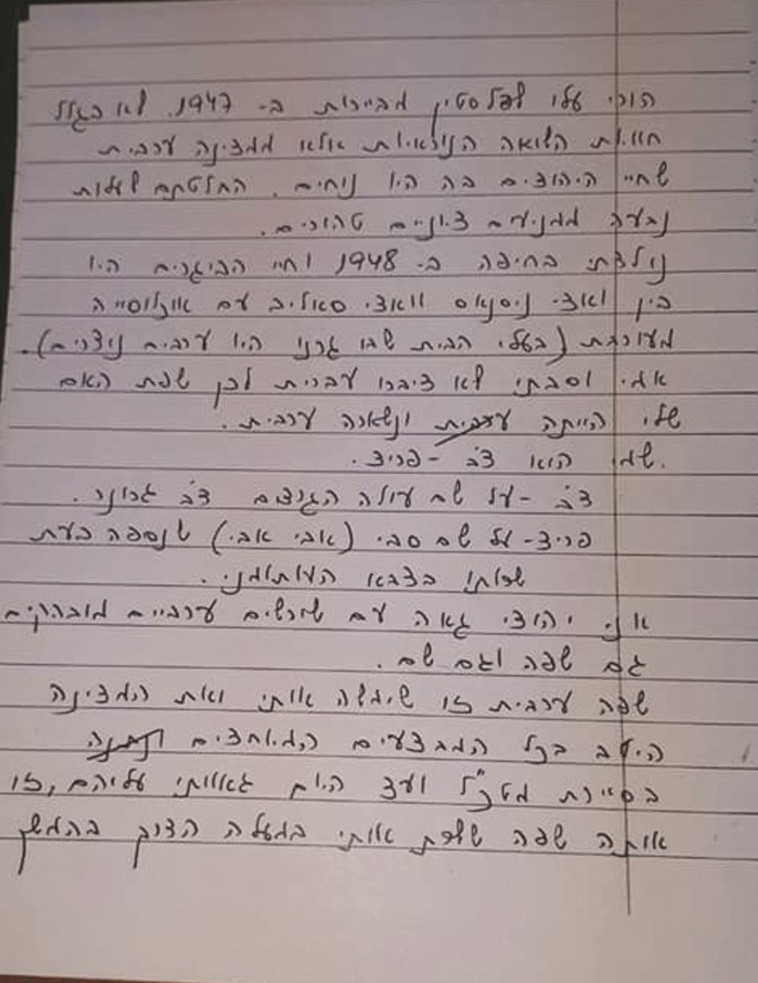 הורי עלו לפלסטין מביירות ב- 1947. לא בגלל
חווית השואה הנוראיות אלא ממדינה ערבית
שחיי היהודים בה היו נוחים. החלטתם לעלות
נבעה ממניעים ציוניים טהורים.
נולדתי בחיפה ב- 1948 וחיי הבוגרים היו
בין ואדי ניסנאס וואדי סאליב עם אוכלוסייה
מעורבת (בעלי הבית שבו גרנו היו ערבים נוצרים).
אמי וסבתי לא דיברו עברית לכן שפת האם
שלי הייתה ערבית ונשארה ערבית.
שמי הוא דב - פריד.
דב - על שם עולה הגרדום דב גרונר.
פריד - על שם סבי (אבי אבי) שנספה בעת
שרותו בצבא העותומני.
אני יהודי גאה עם שורשים ערביים מובהקים
גם שפה וגם שם.
שפה ערבית זו שימשה אותי ואת המדינה
היטב בכל המבצעים המיוחדים
בסיירת מטכ"ל ועד היום גאוותי עליהם, זו
אותה שפה שלות אותי במעלה הדרך בהמשך